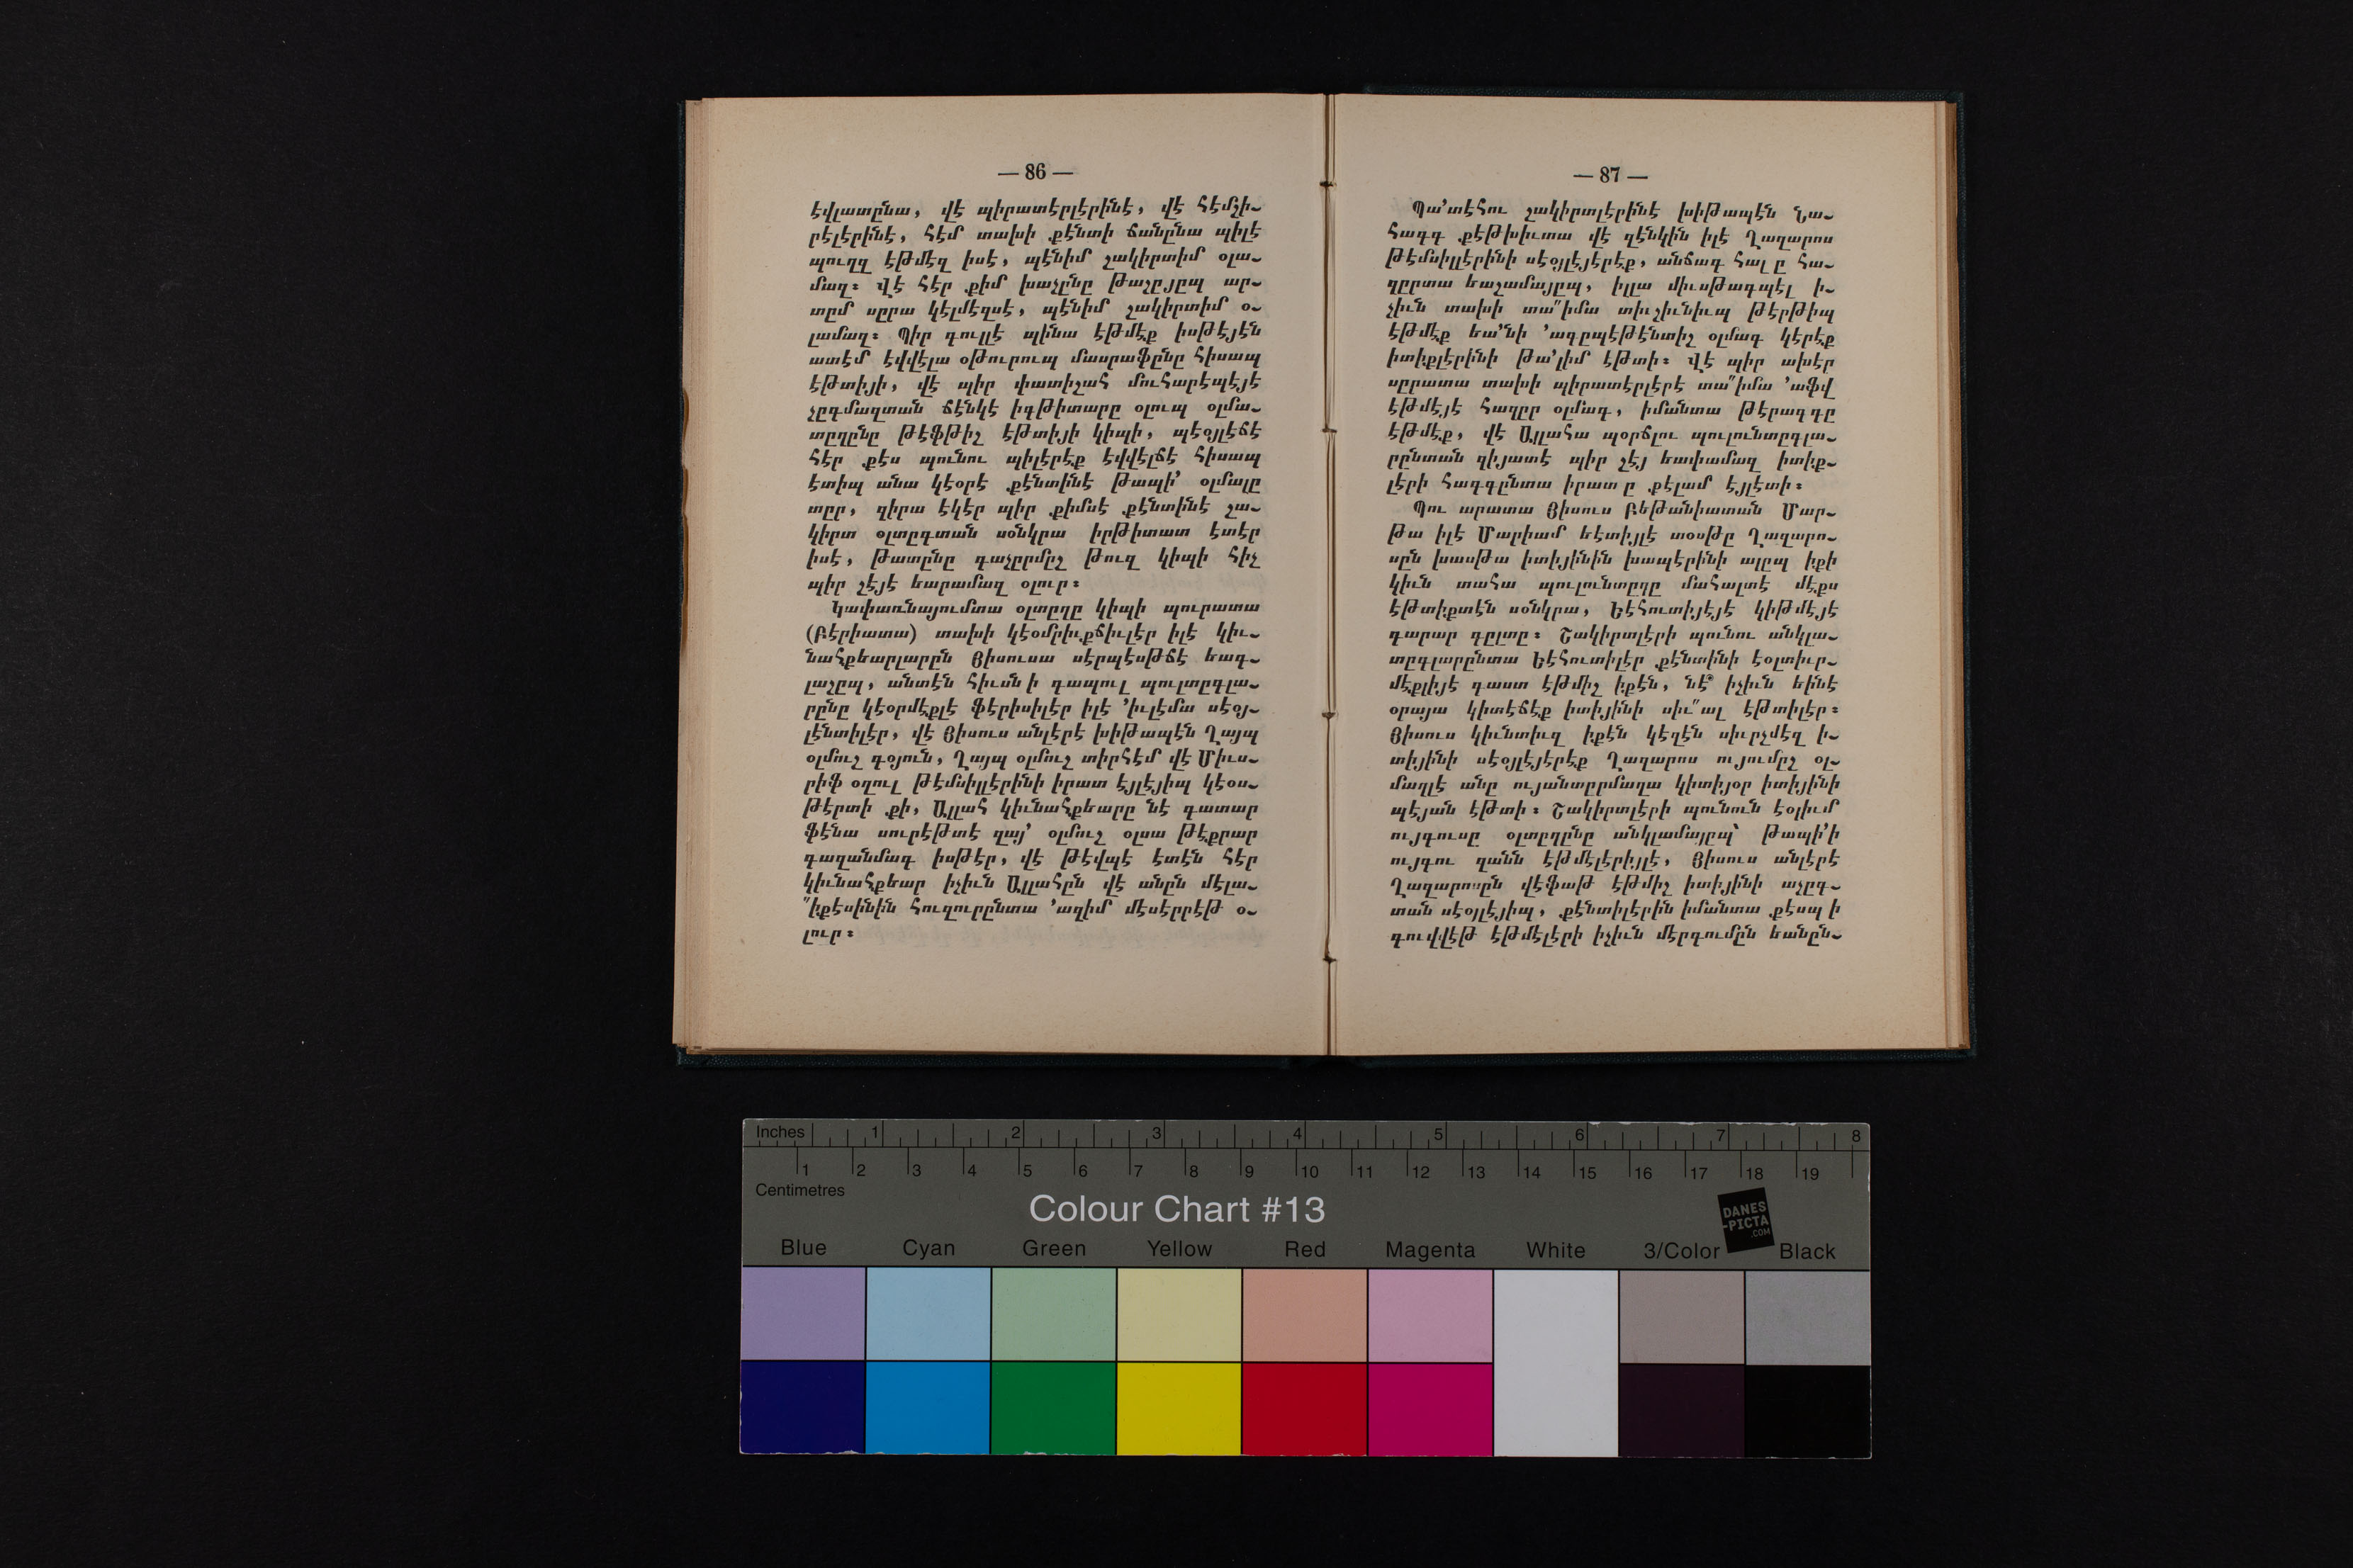 — 86 —
էվլատընա, վէ պիրատէրլէրինէ, վէ հէմշի֊
րէլէրինէ, հէմ տախի քէնտի ճանընա պիլէ
պուղզ էթմէզ իսէ, պէնիմ շակիրտիմ օլա֊
մազ։ Վէ հէր քիմ խաչընը թաշըյըպ ար֊
տըմ սըրա կէլմէզսէ, պէնիմ շակիրտիմ օ֊
լամազ։ Պիր գուլլէ պինա էթմէք իսթէյէն
ատէմ էվվէլա օթուրուպ մասրաֆընը հիսապ
էթտիյի, վէ պիր փատիշահ մուհարէպէյէ
չըգմազտան ճէնկէ իգթիտարը օլուպ օլմա֊
տըղընը թէֆթիշ էթտիյի կիպի, պէօյլէճէ
հէր քէս պունու պիլէրէք էվվէլճէ հիսապ
էտիպ անա կէօրէ քէնտինէ թապի՛ օլմալը
տըր, զիրա էկէր պիր քիմսէ քէնտինէ շա֊
կիրտ օլտըգտան սօնկրա իրթիտատ էտէր
իսէ, թատընը գաչըրմըշ թուզ կիպի հիչ
պիր շէյէ եարամազ օլուր։
Կափառնայումտա օլտըղը կիպի պուրատա
(Բէրիատա) տախի կէօմրիւքճիւլէր իլէ կիւ֊
նահքեարլարըն Յիսուսա սէրպէսթճէ եագ֊
լաշըպ, անտէն հիւսնի գապուլ պուլտըգլա֊
րընը կէօրմէքլէ ֆէրիսիլէր իլէ ՚իւլէմա սէօյ֊
լէնտիլէր, վէ Յիսուս անլէրէ խիթապէն Ղայպ
օլմուշ գօյուն, Ղայպ օլմուշ տիրհէմ վէ Միւս֊
րիֆ օղուլ թէմսիլլէրինի իրատ էյլէյիպ կէօս֊
թէրտի քի, Ալլահ կիւնահքեարը նէ գատար
ֆէնա սուրէթտէ զայ՛ օլմուշ օլսա թէքրար
գազանմագ իսթէր, վէ թէվպէ էտէն հէր
կիւնահքեար իչիւն Ալլահըն վէ անըն մէլա֊
՛՛իքէսինին հուզուրընտա ՚ազիմ մէսէրրէթ օ֊
լուր։
— 87 —
Պա՛տէհու շակիրտլէրինէ խիթապէն Նա֊
հագգ քէթխիւտա վէ զէնկին իլէ Ղազարոս
թէմսիլլէրինի սէօյլէյէրէք, անճագ հալը հա֊
զըրտա եաշամայըպ, իլլա միւսթագպէլ ի֊
չիւն տախի տա՛՛իմա տիւշիւնիւպ թէրթիպ
էթմէք եա՛նի ՚ագըպէթէնտիշ օլմագ կէրէք
իտիքլէրինի թա՛լիմ էթտի։ Վէ պիր ախէր
սըրատա տախի պիրատէրլէրէ տա՛՛իմա ՚աֆվ
էթմէյէ հազըր օլմագ, իմանտա թէրագգը
էթմէք, վէ Ալլահա պօրճլու պուլունտըգլա֊
րընտան զիյատէ պիր շէյ եափամազ իտիք֊
լէրի հագգընտա իրատը քէլամ էյլէտի։
Պու արատա Յիսուս Բեթանիատան Մար֊
թա իլէ Մարիամ եէտիյլէ տօսթը Ղազարո֊
սըն խասթա իտիյինին խապէրինի ալըպ իքի
կիւն տահա պուլունտըղը մահալտէ մէքս
էթտիքտէն սօնկրա, Եէհուտիյէյէ կիթմէյէ
գարար գըլտը։ Շակիրտլէրի պունու անկլա֊
տըգլարընտա Եէհուտիլէր քէնտինի էօլտիւր֊
մէքլիյէ գաստ էթմիշ իքէն, նէ՞ իչիւն եինէ
օրայա կիտէճէք իտիյինի սիւ՛՛ալ էթտիլէր։
Յիսուս կիւնտիւզ իքէն կէզէն սիւրչմէզ ի֊
տիյինի սէօյլէյէրէք Ղազարոս ույումըշ օլ֊
մաղլէ անը ույանտըրմաղա կիտիյօր իտիյինի
պէյան էթտի։ Շակիրտլէրի պունուն էօլիւմ
ույգուսը օլտըղընը անկլամայըպ՝ թապի՛ի
ույգու զանն էթմէլէրիյլէ, Յիսուս անլէրէ
Ղազարոսըն վէֆաթ էթմիշ իտիյինի աչըգ֊
տան սէօյլէյիպ, քէնտիլէրին իմանտա քէսպի
գուվվէթ էթմէլէրի իչիւն մէրգումըն եանըն֊
Inches 1 2 3 4 5 6 7 8
1 2 3 4 5 6 7 8 9 10 11 12 13 14 15 16 17 18 19
Centimetres
Colour Chart #13
DANES
-PICTA
.COM
Blue Cyan Green Yellow Red Magenta White 3/Color Black